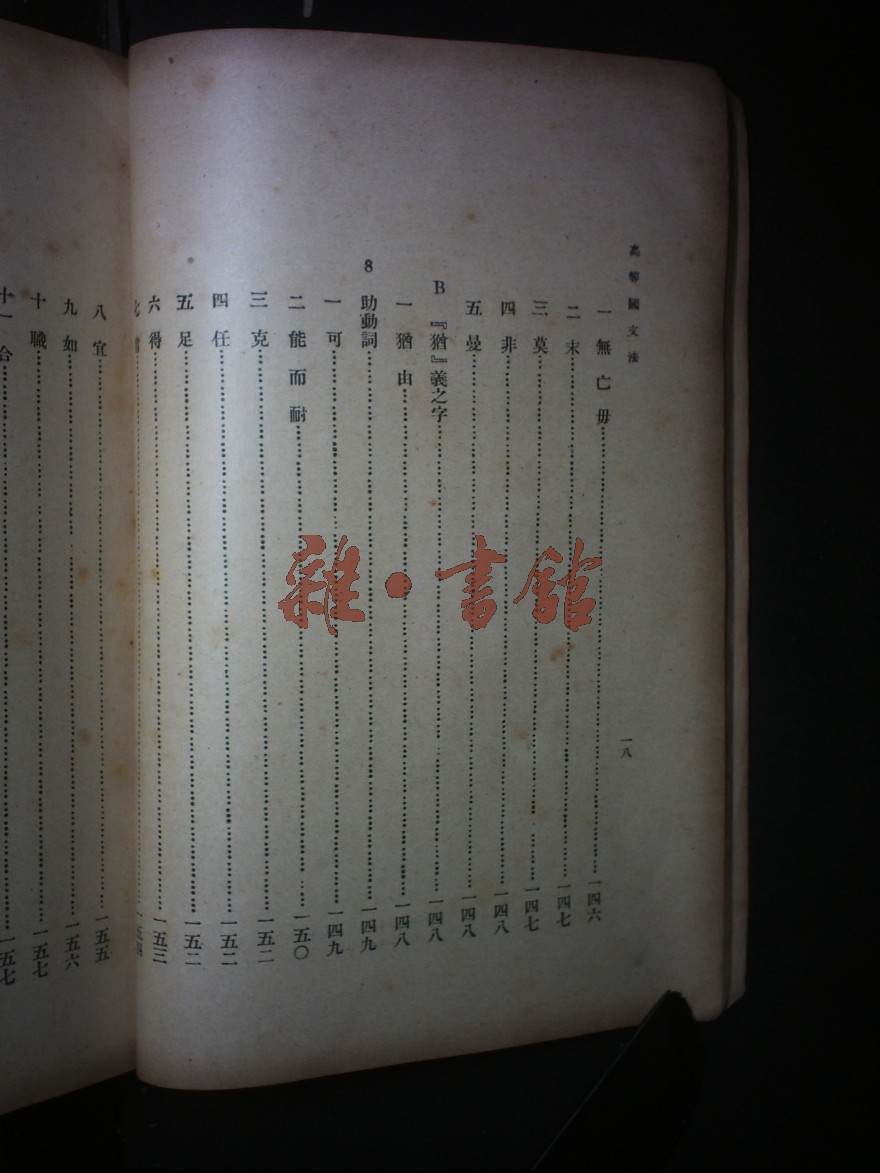 高等國文法
一八
一 無 亡 毋 一四六
二 末 一四七
三 莫 一四七
四 非 一四八
五 曼 一四八
B 『猶』義之字 一四八
一 猶 由 一四八
8 助動詞 一四九
一 可 一四九
二 能 而 耐 一五〇
三 克 一五二
四 任 一五二
五 足 一五二
六 得 一五三
八 宜 一五五
九 如 一五六
十 職 一五七
十一 合 一五七
雜·書館